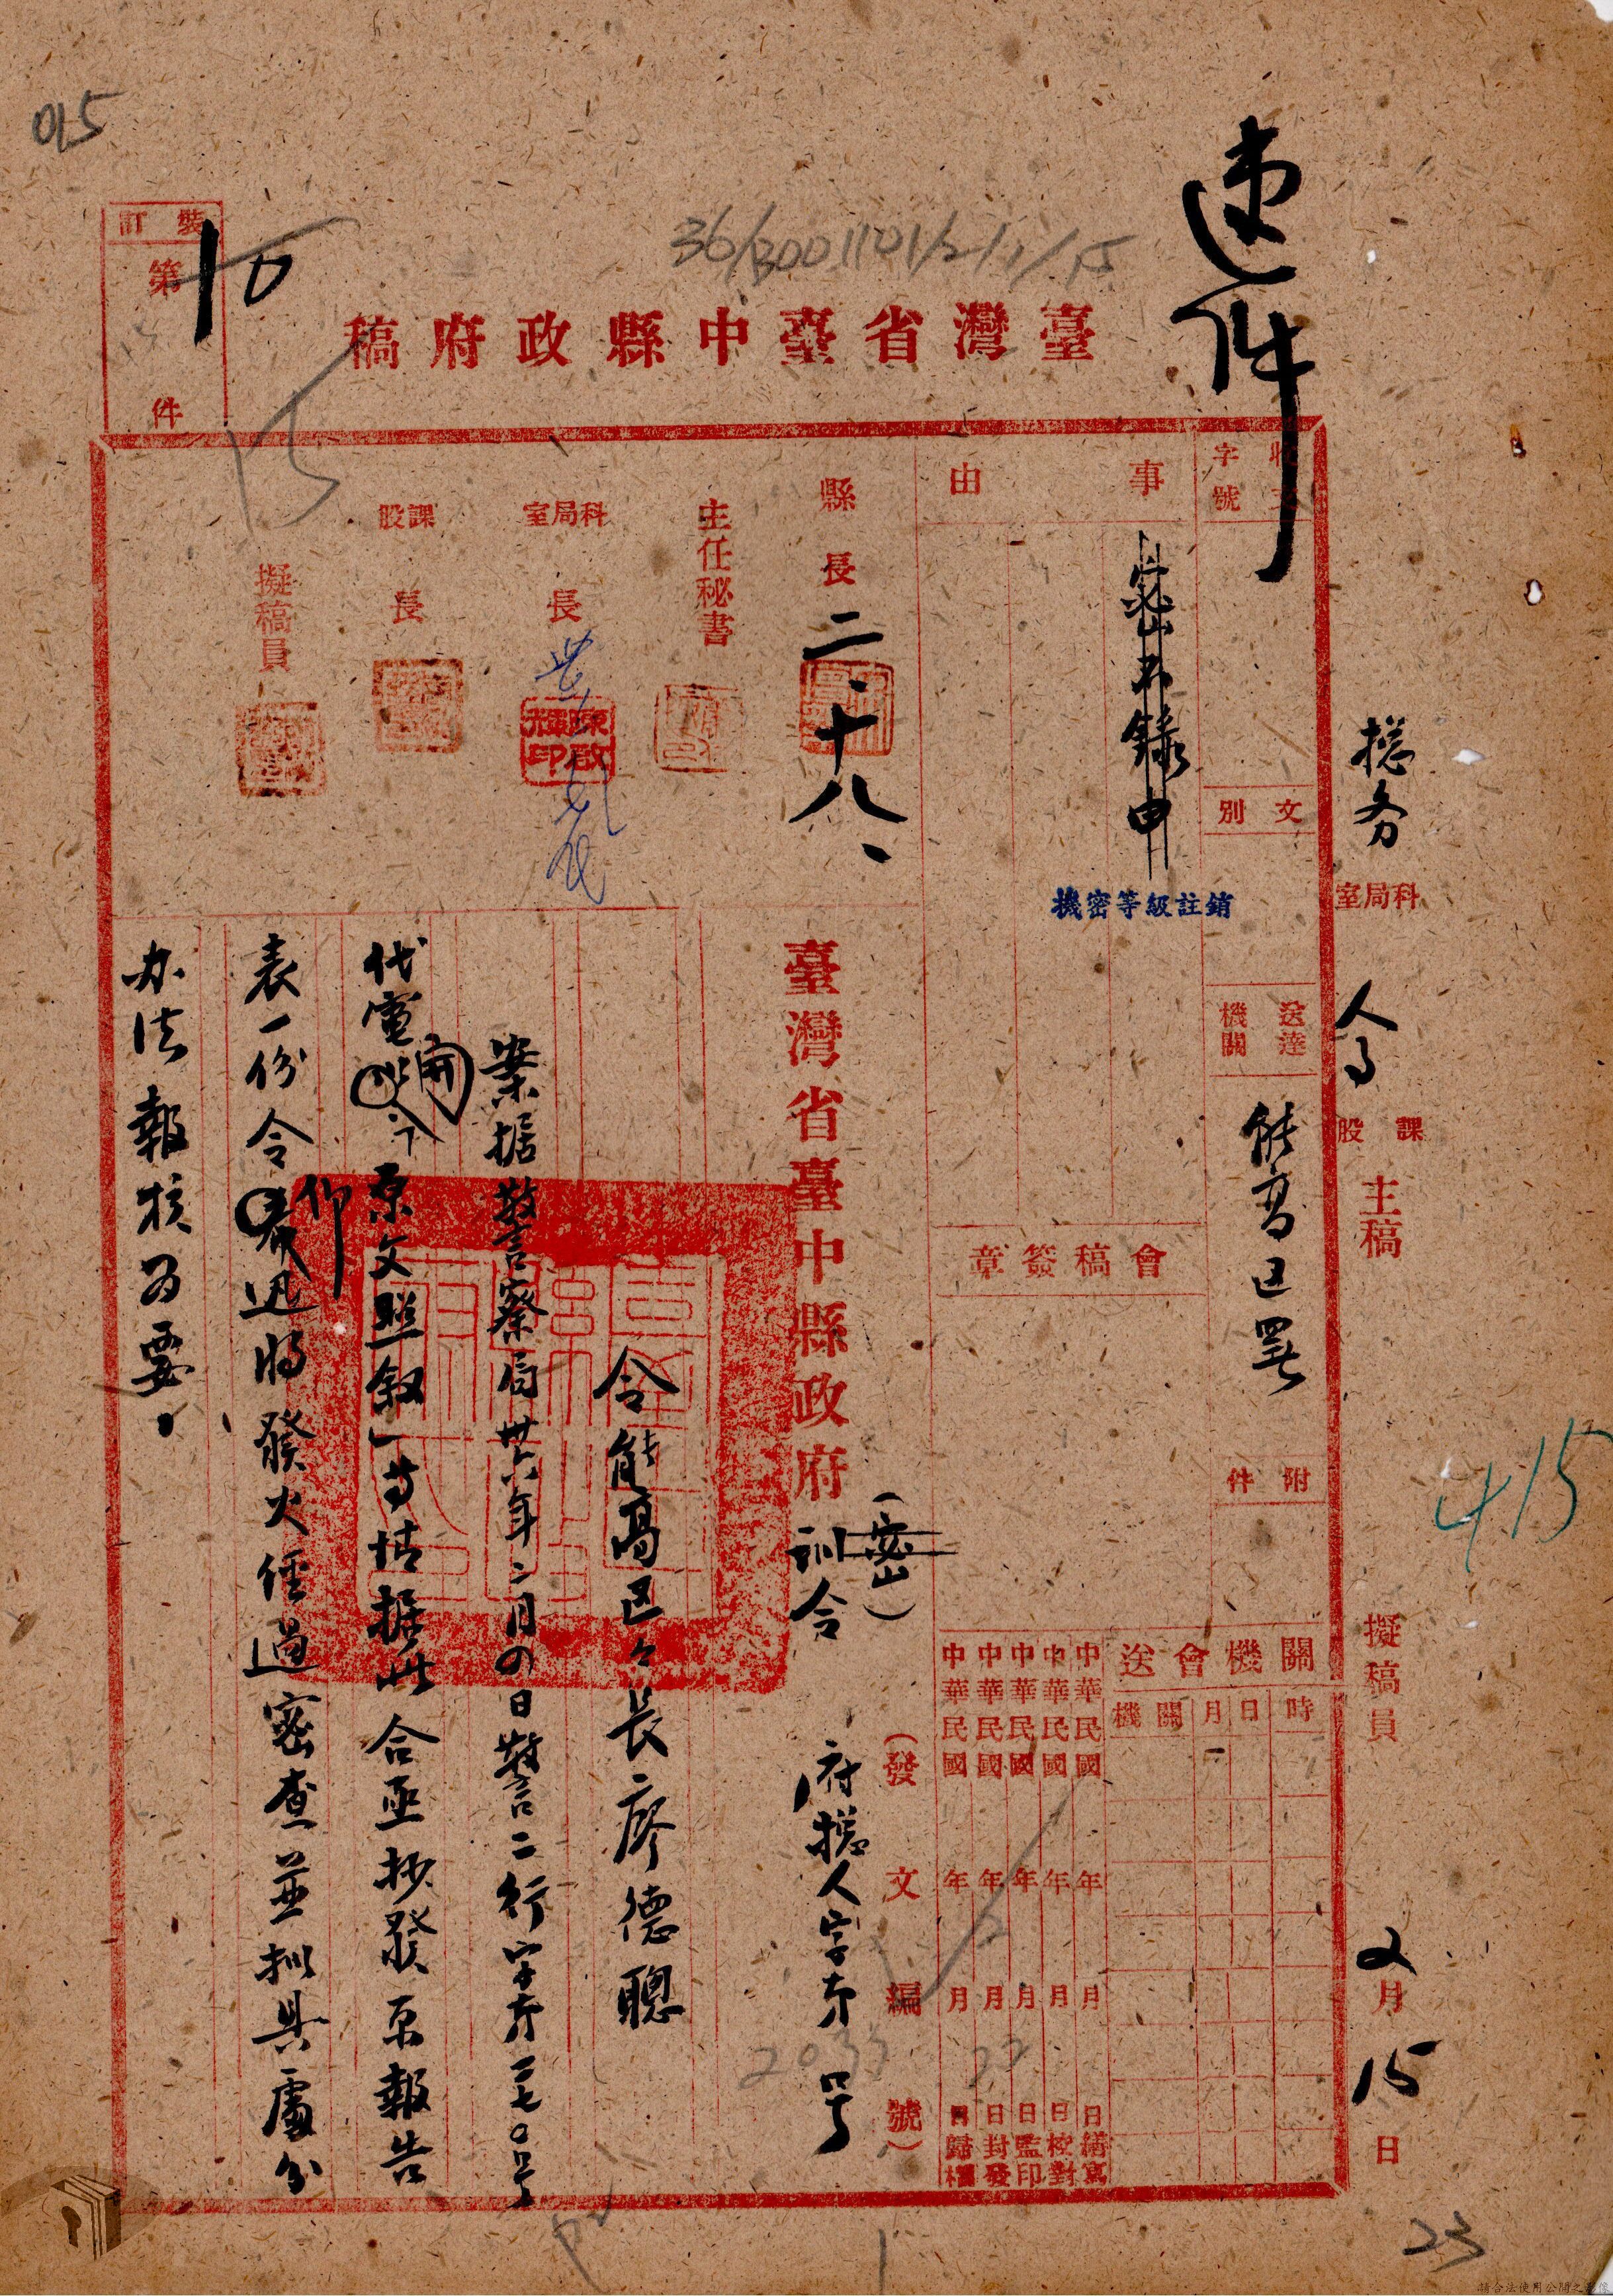 015
36/3001101/2/1/15
速件
裝訂
第 10 件
15
臺灣省臺中縣政府稿
總務
科局室
人事
課股
主稿
擬稿員
2月15日
415
收文字號
文別
送達機關
能高區署
附件
事由
密不錄由
機密等級註銷
會稿簽章
關機會送
時
日
月
關機
中華民國 年 月 日繕寫
中華民國 年 月 日校對
中華民國 年 月 日監印
中華民國 年 月 日封發
中華民國 年 月 日歸檔
22
縣長
二、十八、
主任秘書
科局室長
陳啟輝印
課股長
擬稿員
(發文編號)
臺灣省臺中縣政府
(密)
訓令
府總人字第 号
2033
令能高区々長廖德聰
案据警察局卅六年二月四日警二行字第三七〇号
代電開「原文照叙」等情据此合亟抄發原報告
表一份令仰迅将發火経過密查並拟具處分
办法報核為要。
23
請合法使用公開之影像